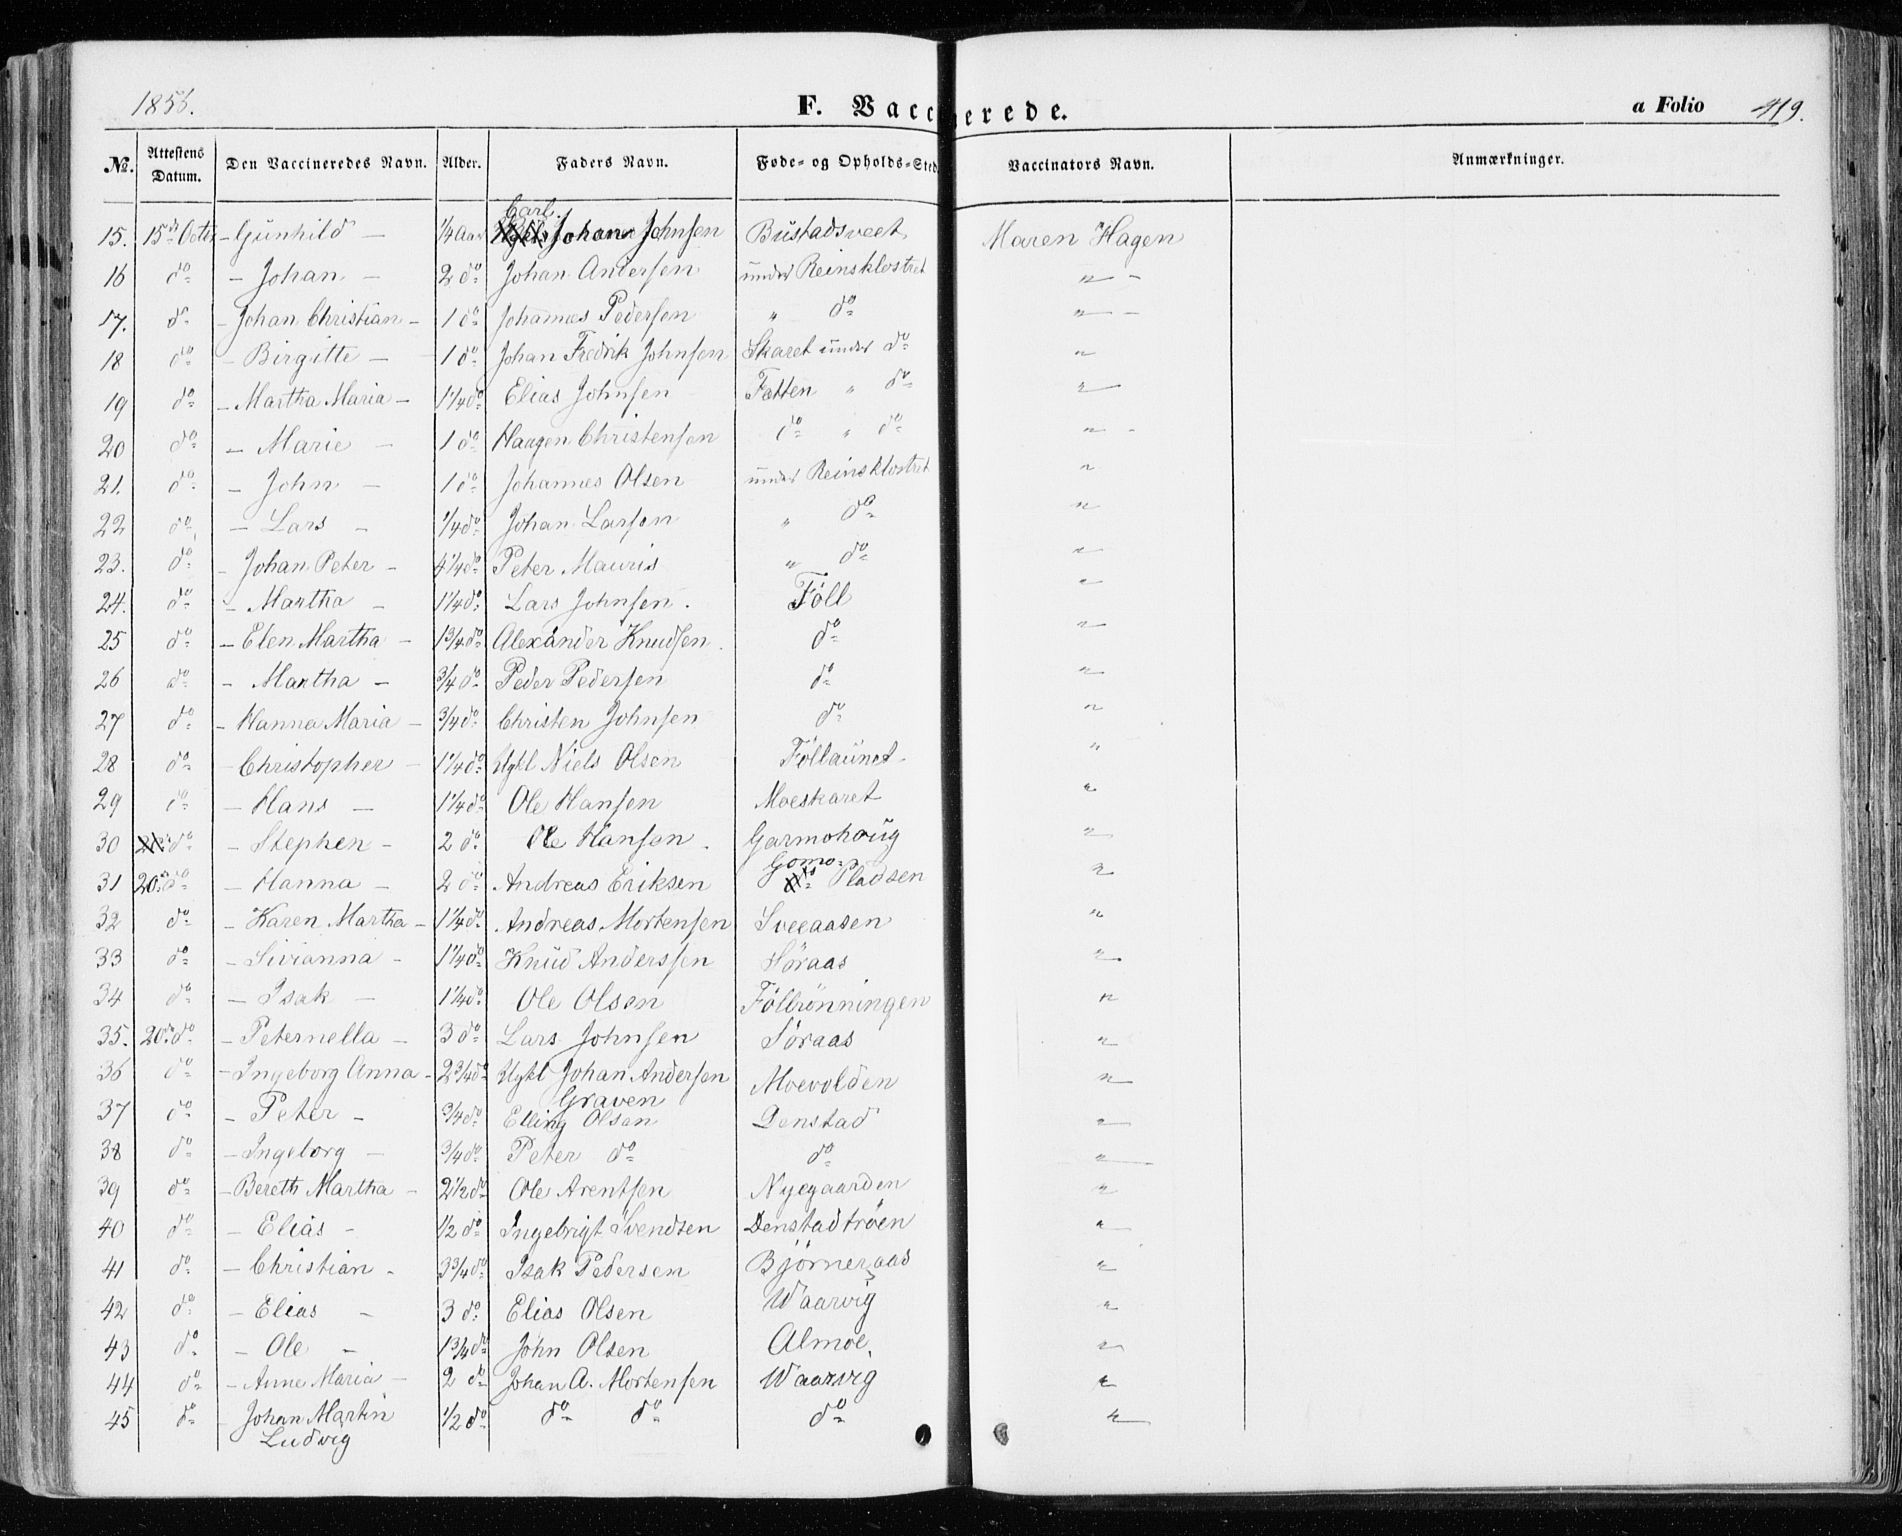 1856.
F. Vaccinerede.
a Folio 419.
No. Attestens Datum. Den Vaccineredes Navn. Alder. Faders Navn. Føde- og Opholds-Sted. Vaccinators Navn. Anmærkninger.
Carl
15. 15de Octer - Gunhild - 1/4 Aar Johan Johnsen Bustadsveet Maren Hagen
16 do - Johan - 2 do Johan Andersen under Reinsklostret " -
17. do - Johan Christian - 1 do Johannes Pedersen " do " -
18 do - Birgitte - 1 do Johan Fredrik Johnsen Skaret under do "
19 do - Martha Maria - 1 1/4 do Elias Johnsen Fatten " do "
20 do - Marie - 1 do Haagen Christensen do " do " -
21. do - John - 1 do Johannes Olsen under Reinsklostret "
22 do - Lars - 1/4 do Johan Larsen " do "
23. do - Johan Peter - 4 1/4 do Peter Mauris " do "
24. do - Martha - 1 1/4 do Lars Johnsen. Föll "
25 do - Elen Martha - 1 3/4 do Alexander Knudsen. do "
26 do - Martha - 3/4 do Peder Pedersen do "
27 do - Hanna Maria - 3/4 do Christen Johnsen do "
28 do - Christopher - 1 1/4 do Ugkl Niels Olsen Föllaunet "
29 do - Hans - 1 1/4 do Ole Hansen Moeskaret "
30 do - Stephen - 2 do Ole Hansen. Garmohoug "
31 20de do - Hanna - 2 do Andreas Eriksen Pladsen "
32 do - Karen Martha - 1 1/4 do Andreas Mortensen Sveeaasen "
33 do - Sivianna - 1 1/4 do Knud Anderssen Høraas "
34 do - Isak - 1 1/4 do Ole Olsen Föllrönningen "
35. 20de do - Peternella - 3 do Lars Johnsen Søraas "
36 do - Ingeborg Anna - 2 3/4 do Ugkl Johan Andersen Graven Moevolden "
37 do - Peter - 3/4 do Elling Olsen Denstad "
38 do - Ingeborg - 3/4 do Peter do do "
39 do - Bereth Martha - 2 1/2 do Ole Arentsen Nyegaarden "
40 do - Elias - 1/2 do Ingebrigt Svendsen Denstadtröen "
41 do - Christian - 3 3/4 do Isak Pedersen Björneraas "
42 do - Elias - 3 do Elias Olsen Waarvig "
43 do - Ole - 1 3/4 do John Olsen Almoe, "
44 do - Anne Maria - 2 do Johan A. Mortensen Waarvig "
45 do - Johan Martin 1/2 do do do do "
Ludvig